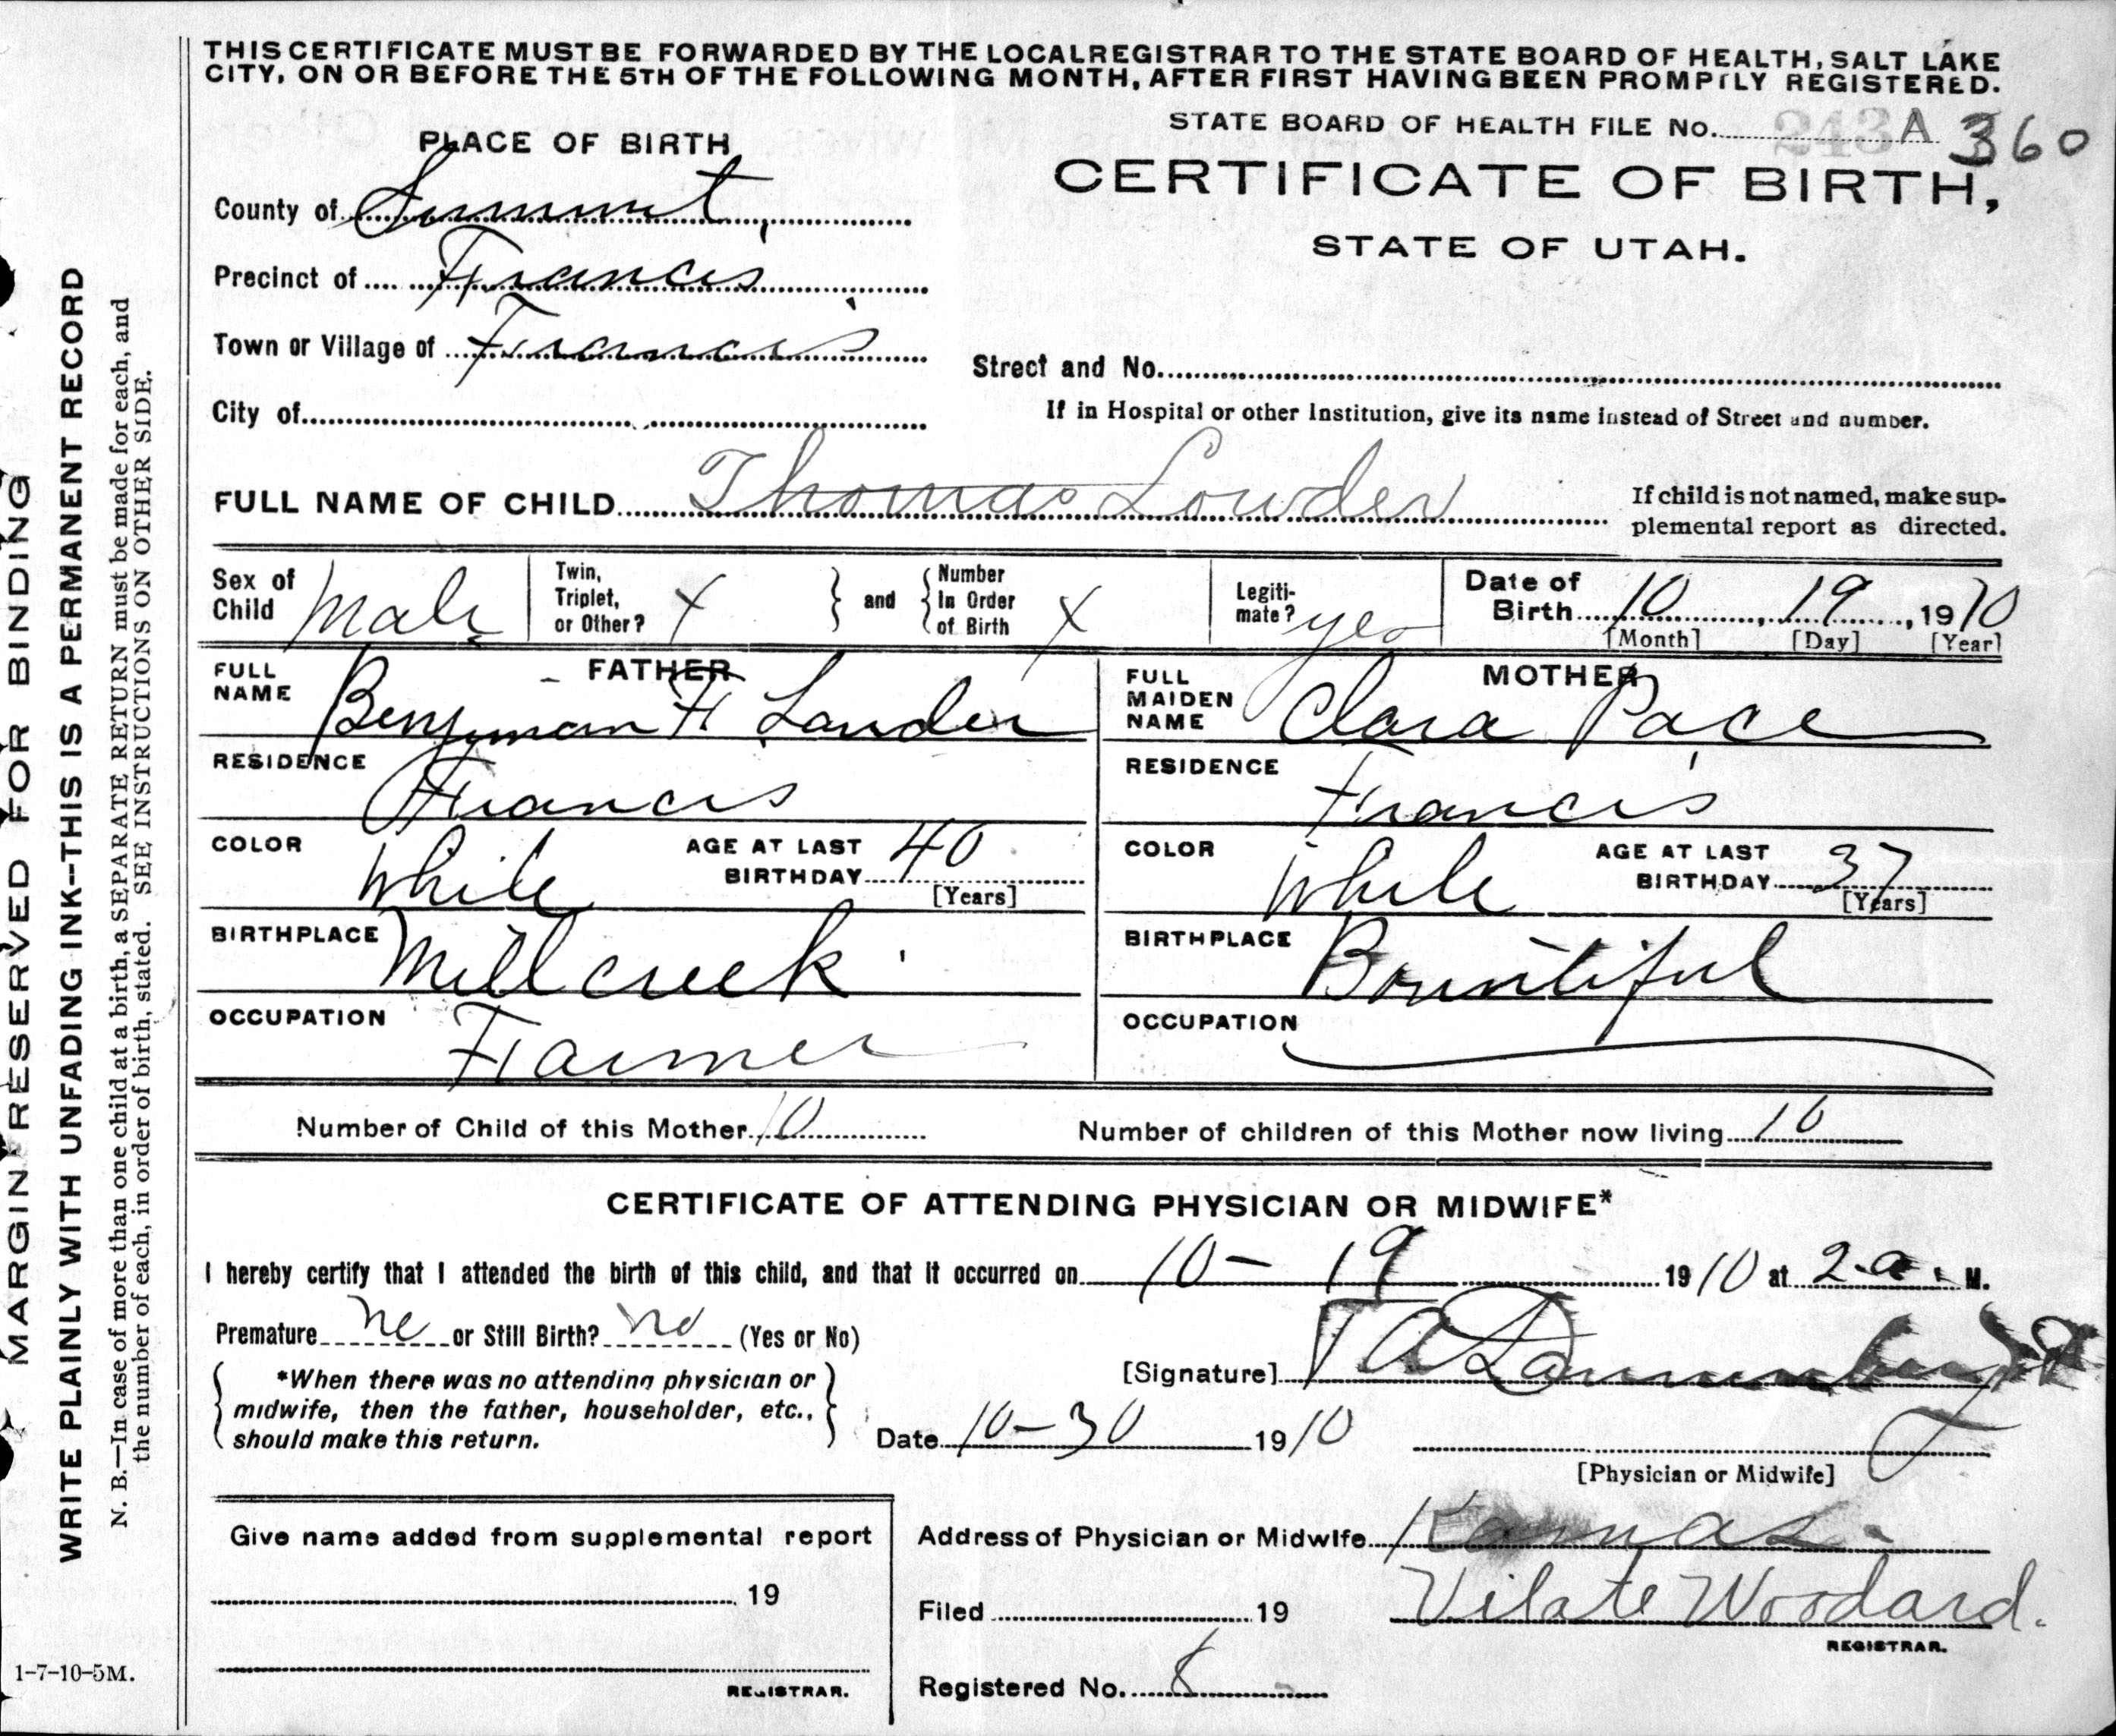 THIS CERTIFICATE MUST BE FORWARDED BY THE LOCAL REGISTRAR TO THE STATE BOARD OF HEALTH, SALT LAKE
CITY, ON OR BEFORE THE 5TH OF THE FOLLOWING MONTH, AFTER FIRST HAVING BEEN PROMPTLY REGISTERED.
STATE BOARD OF HEALTH FILE No. 243 A 360
PLACE OF BIRTH
CERTIFICATE OF BIRTH,
STATE OF UTAH.
County of Summit
Precinct of Francis
Town or Village of Francis
Street and No.
City of
If in Hospital or other Institution, give its name instead of Street and number.
FULL NAME OF CHILD Thomas Lowder
If child is not named, make sup-
plemental report as directed.
Sex of Child Male
Twin, Triplet, or Other? X
and
Number In Order of Birth X
Legiti-
mate? yes
Date of Birth 10, 19, 1910
[Month] [Day] [Year]
FATHER
FULL NAME Benjman F Lauder
RESIDENCE Francis
COLOR White AGE AT LAST BIRTHDAY 40
[Years]
BIRTHPLACE Millcreek
OCCUPATION Farmer
MOTHER
FULL MAIDEN NAME Clara Pace
RESIDENCE Francis
COLOR White AGE AT LAST BIRTHDAY 37
[Years]
BIRTHPLACE Bountiful
OCCUPATION
Number of Child of this Mother 10
Number of children of this Mother now living 10
CERTIFICATE OF ATTENDING PHYSICIAN OR MIDWIFE*
I hereby certify that I attended the birth of this child, and that it occurred on 10-19 1910 at 2 a. M.
Premature no or Still Birth? no (Yes or No)
*When there was no attending physician or
midwife, then the father, householder, etc.,
should make this return.
[Signature]
Date 10-30 1910
[Physician or Midwife]
Give name added from supplemental report
19
REGISTRAR.
Address of Physician or Midwife Kamas
Filed 19
Vilate Woodard.
REGISTRAR.
Registered No. 8
MARGIN RESERVED FOR BINDING
WRITE PLAINLY WITH UNFADING INK--THIS IS A PERMANENT RECORD
N. B.—In case of more than one child at a birth, a SEPARATE RETURN must be made for each, and
the number of each, in order of birth, stated. SEE INSTRUCTIONS ON OTHER SIDE.
1-7-10-5M.